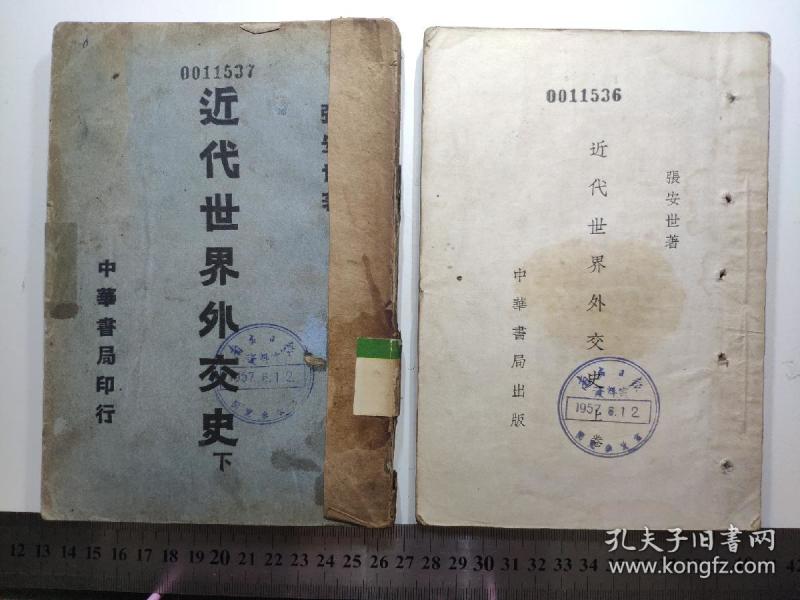 0011537
張安世著
近代世界外交史
下
中華書局印行
1957.6.12
0011536
張安世著
近代世界外交史 上卷
中華書局出版
1957.6.12
12 13 14 15 16 17 18 19 20 21 22 23 24 25 26 27 28 29 30 31 32 33 34 35 36
孔夫子旧书网
www.kongfz.com